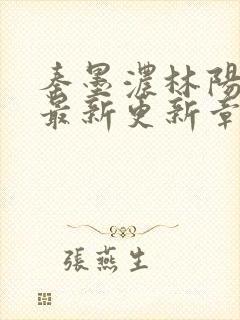 秦墨濃林陽
最新更新章
張燕生